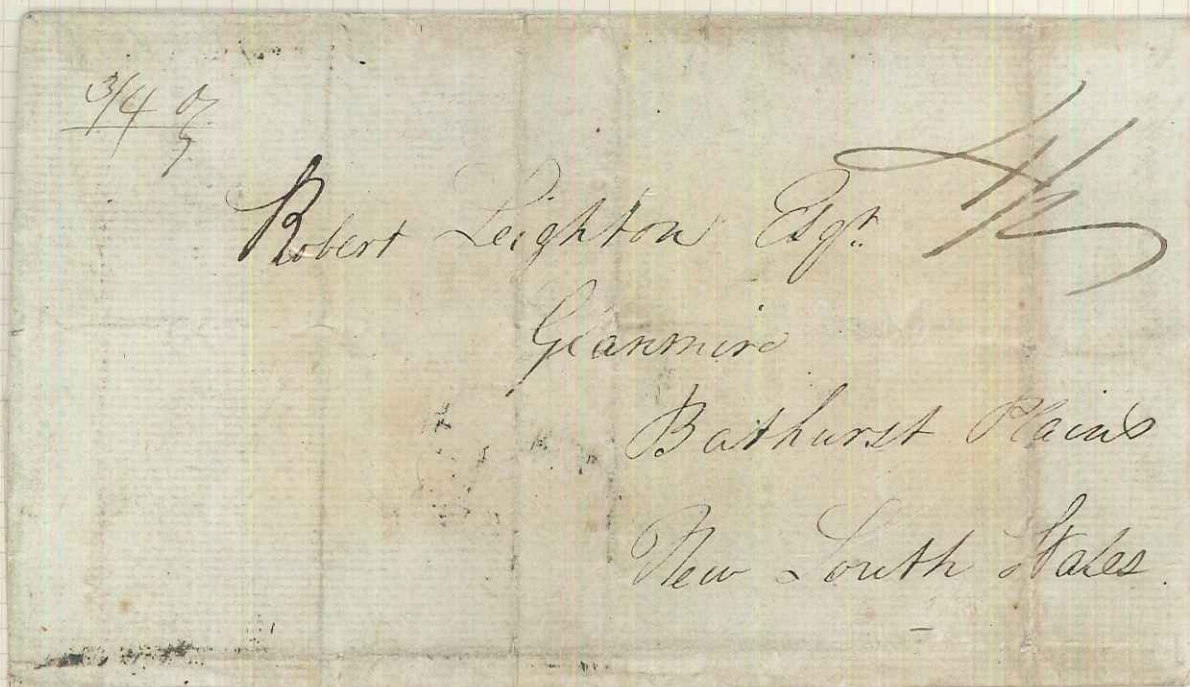 3/4 oz
Robert Leighton Esqr.
Glanmire
Bathurst Plains
New South Wales.